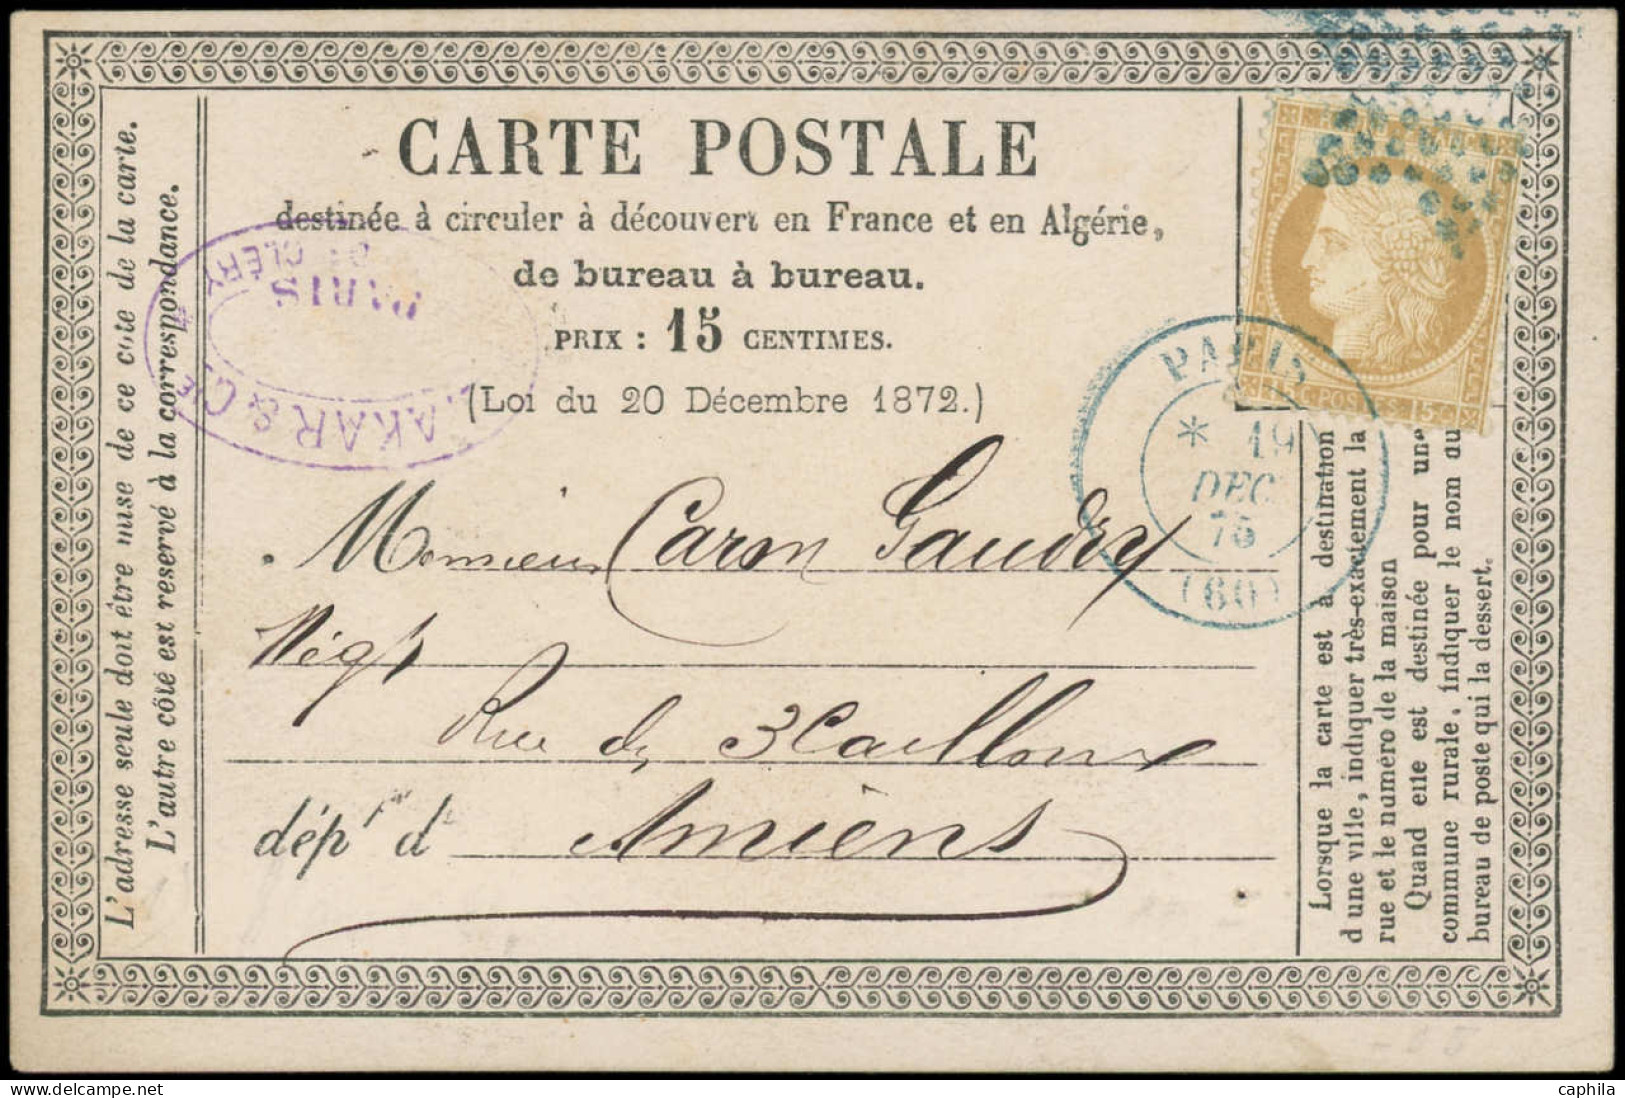 CARTE POSTALE
destinée à circuler à découvert en France et en Algérie,
de bureau à bureau.
PRIX : 15 CENTIMES.
(Loi du 20 Décembre 1872.)
L'adresse seule doit être mise de ce côté de la carte.
L'autre côté est reservé à la correspondance.
AKAR & CIE
PARIS
CLÉRY
POSTES 15c
PARIS
* 19
DEC
75
(60)
Monsieur Caron Gaudry
Négt
Rue des 3 Cailloux
dépt d Amiens
Lorsque la carte est à destination
d'une ville, indiquer très-exactement la
rue et le numéro de la maison
Quand elle est destinée pour une
commune rurale, indiquer le nom du
bureau de poste qui la dessert.
caphila